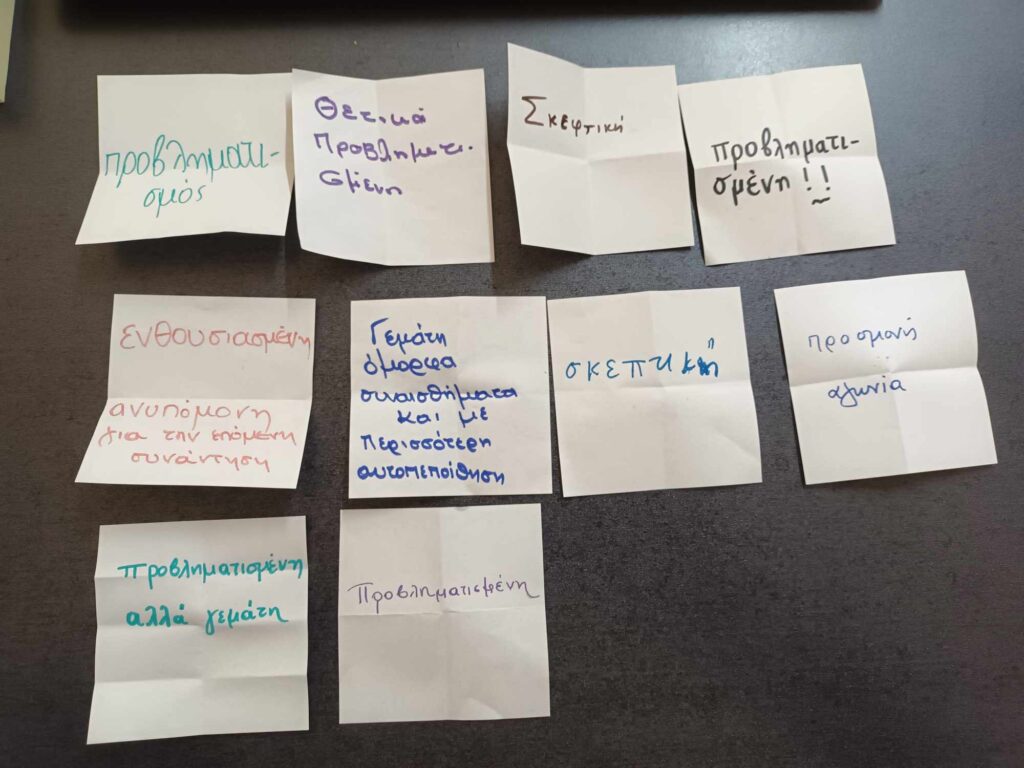 προβληματι-
σμός
Θετικά
Προβληματι-
σμένη
Σκεφτική
προβληματι-
σμένη !!
ενθουσιασμένη
ανυπόμονη
για την επόμενη
συνάντηση
Γεμάτη
όμορφα
συναισθήματα
και με
περισσότερη
αυτοπεποίθηση
σκεπτική
προσμονή
αγωνία
προβληματισμένη
αλλά γεμάτη
Προβληματισμένη